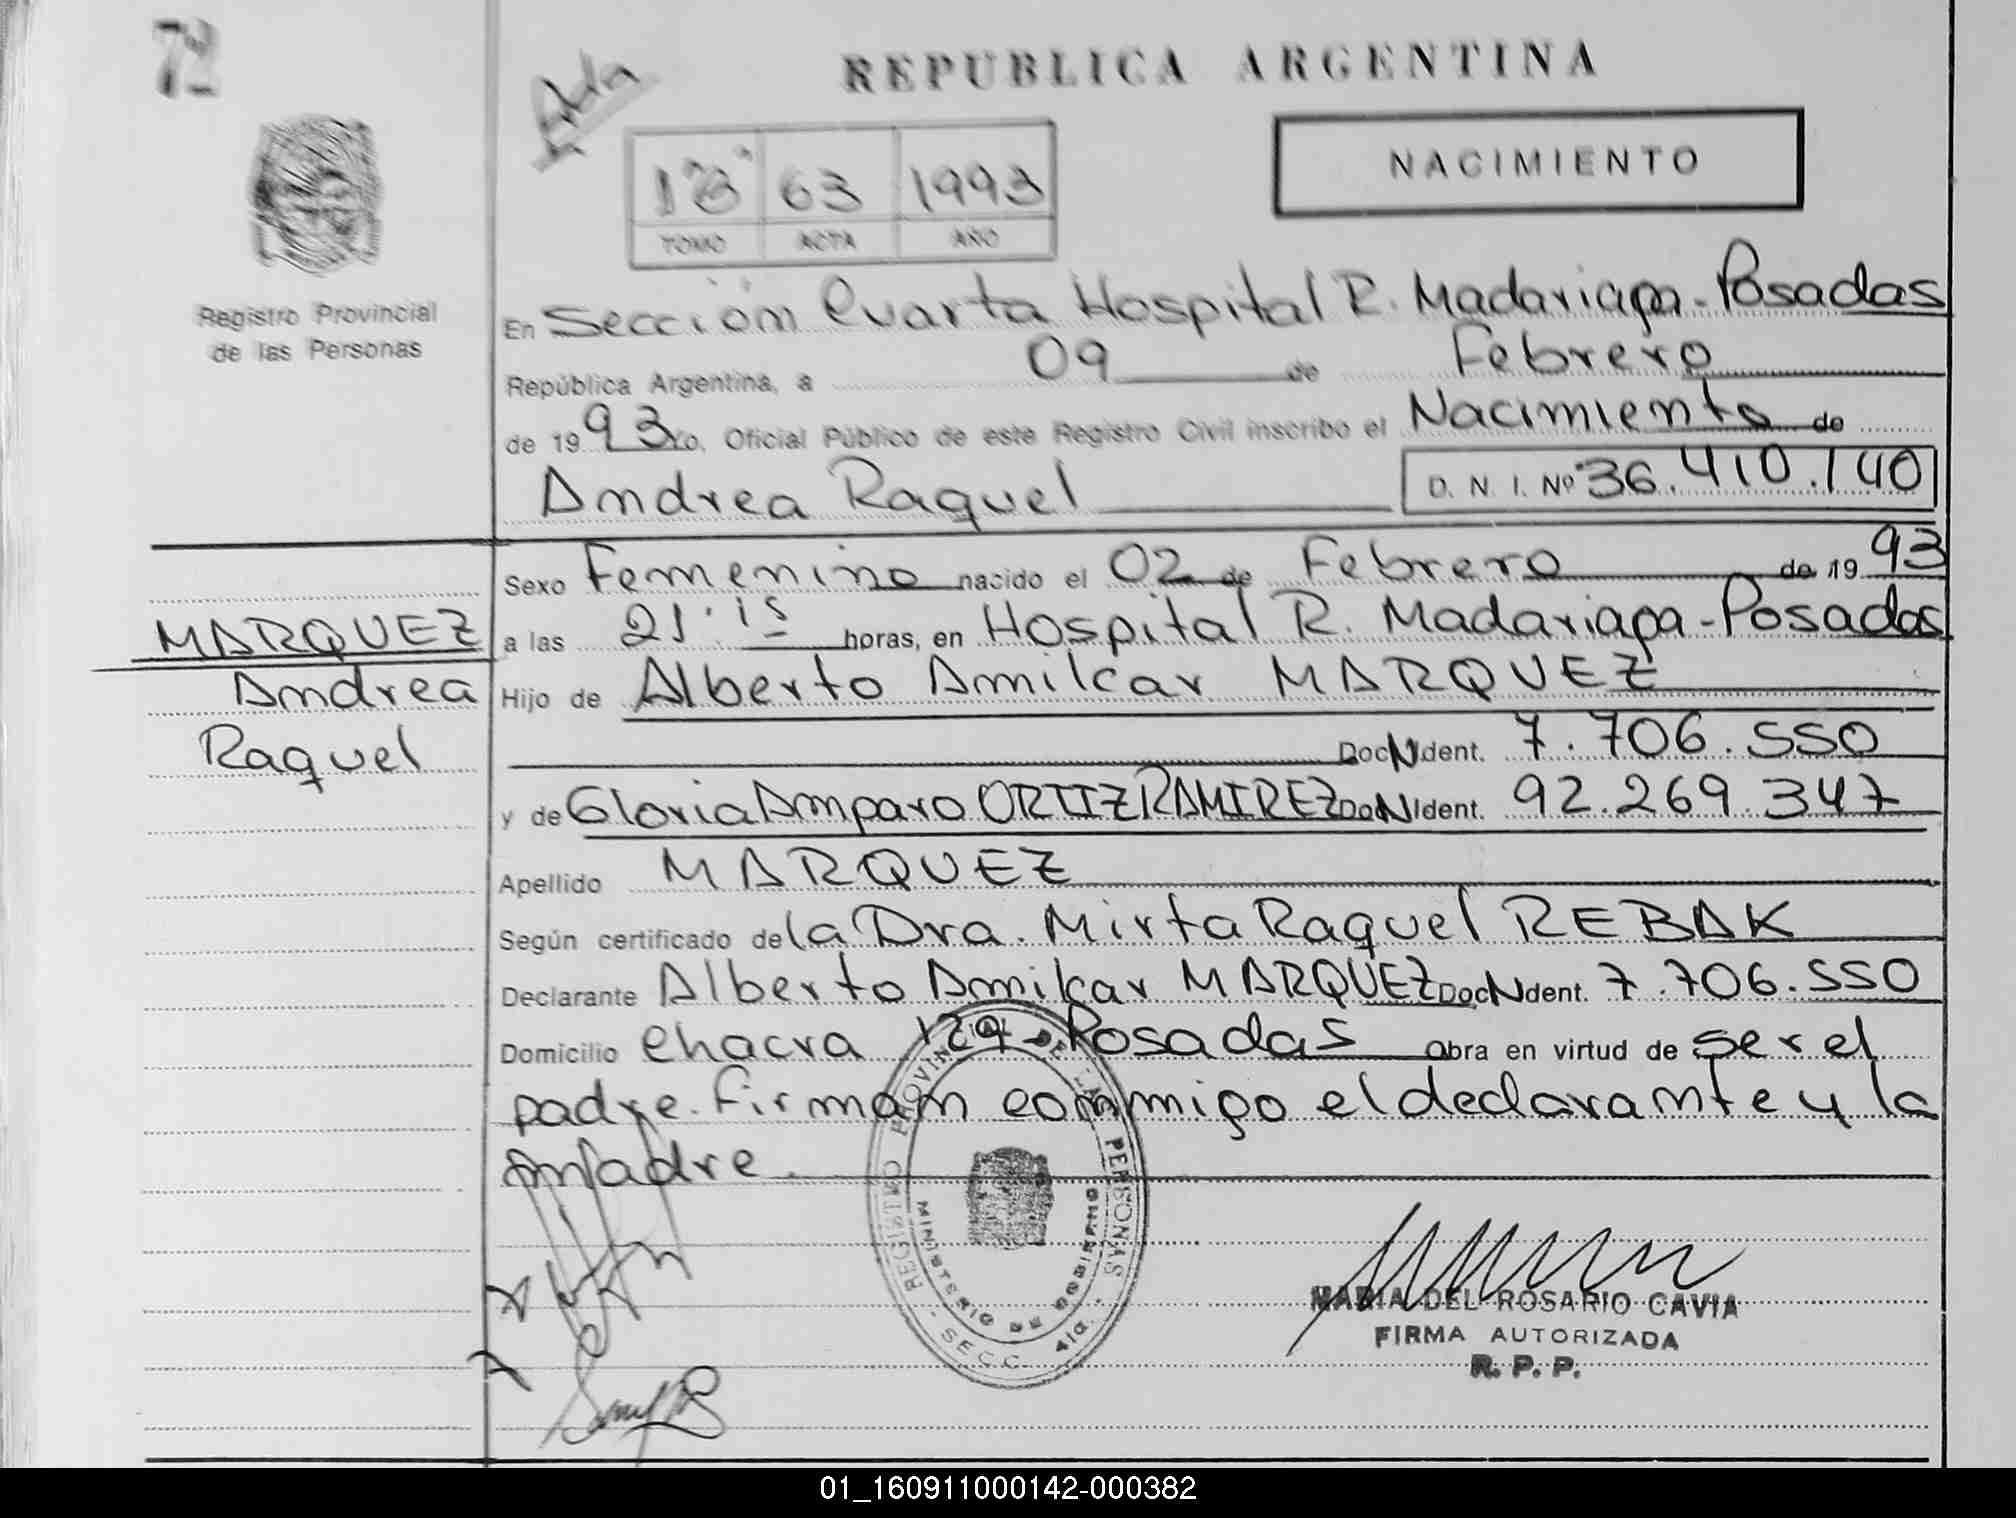 72
REPUBLICA ARGENTINA
NACIMIENTO
63 1993
TOMO ACTA AÑO
Registro Provincial
de las Personas
En Sección Cuarta Hospital R. Madariaga - Posadas
República Argentina, a 09 de Febrero
de 1993 Yo, Oficial Público de este Registro Civil inscribo el Nacimiento de
Andrea Raquel D. N. I. Nº 36.410.140
Sexo Femenino nacido el 02 de Febrero de 1993
a las 21.15 horas, en Hospital R. Madariaga - Posadas
Hijo de Alberto Amilcar MARQUEZ
Doc N Ident. 7.706.550
y de Gloria Amparo ORTIZ RAMIREZ Doc N Ident. 92.269.347
Apellido MARQUEZ
Según certificado de la Dra. Mirta Raquel REBAK
Declarante Alberto Amilcar MARQUEZ Doc N Ident. 7.706.550
Domicilio chacra 129 - Posadas Obra en virtud de ser el
padre. Firman conmigo el declarante y la
madre.
MARQUEZ
Andrea
Raquel
REGISTRO PROVINCIAL DE LAS PERSONAS
MINISTERIO DE GOBIERNO
SECC. 4ta.
MARIA DEL ROSARIO CAVIA
FIRMA AUTORIZADA
R. P. P.
01_160911000142-000382